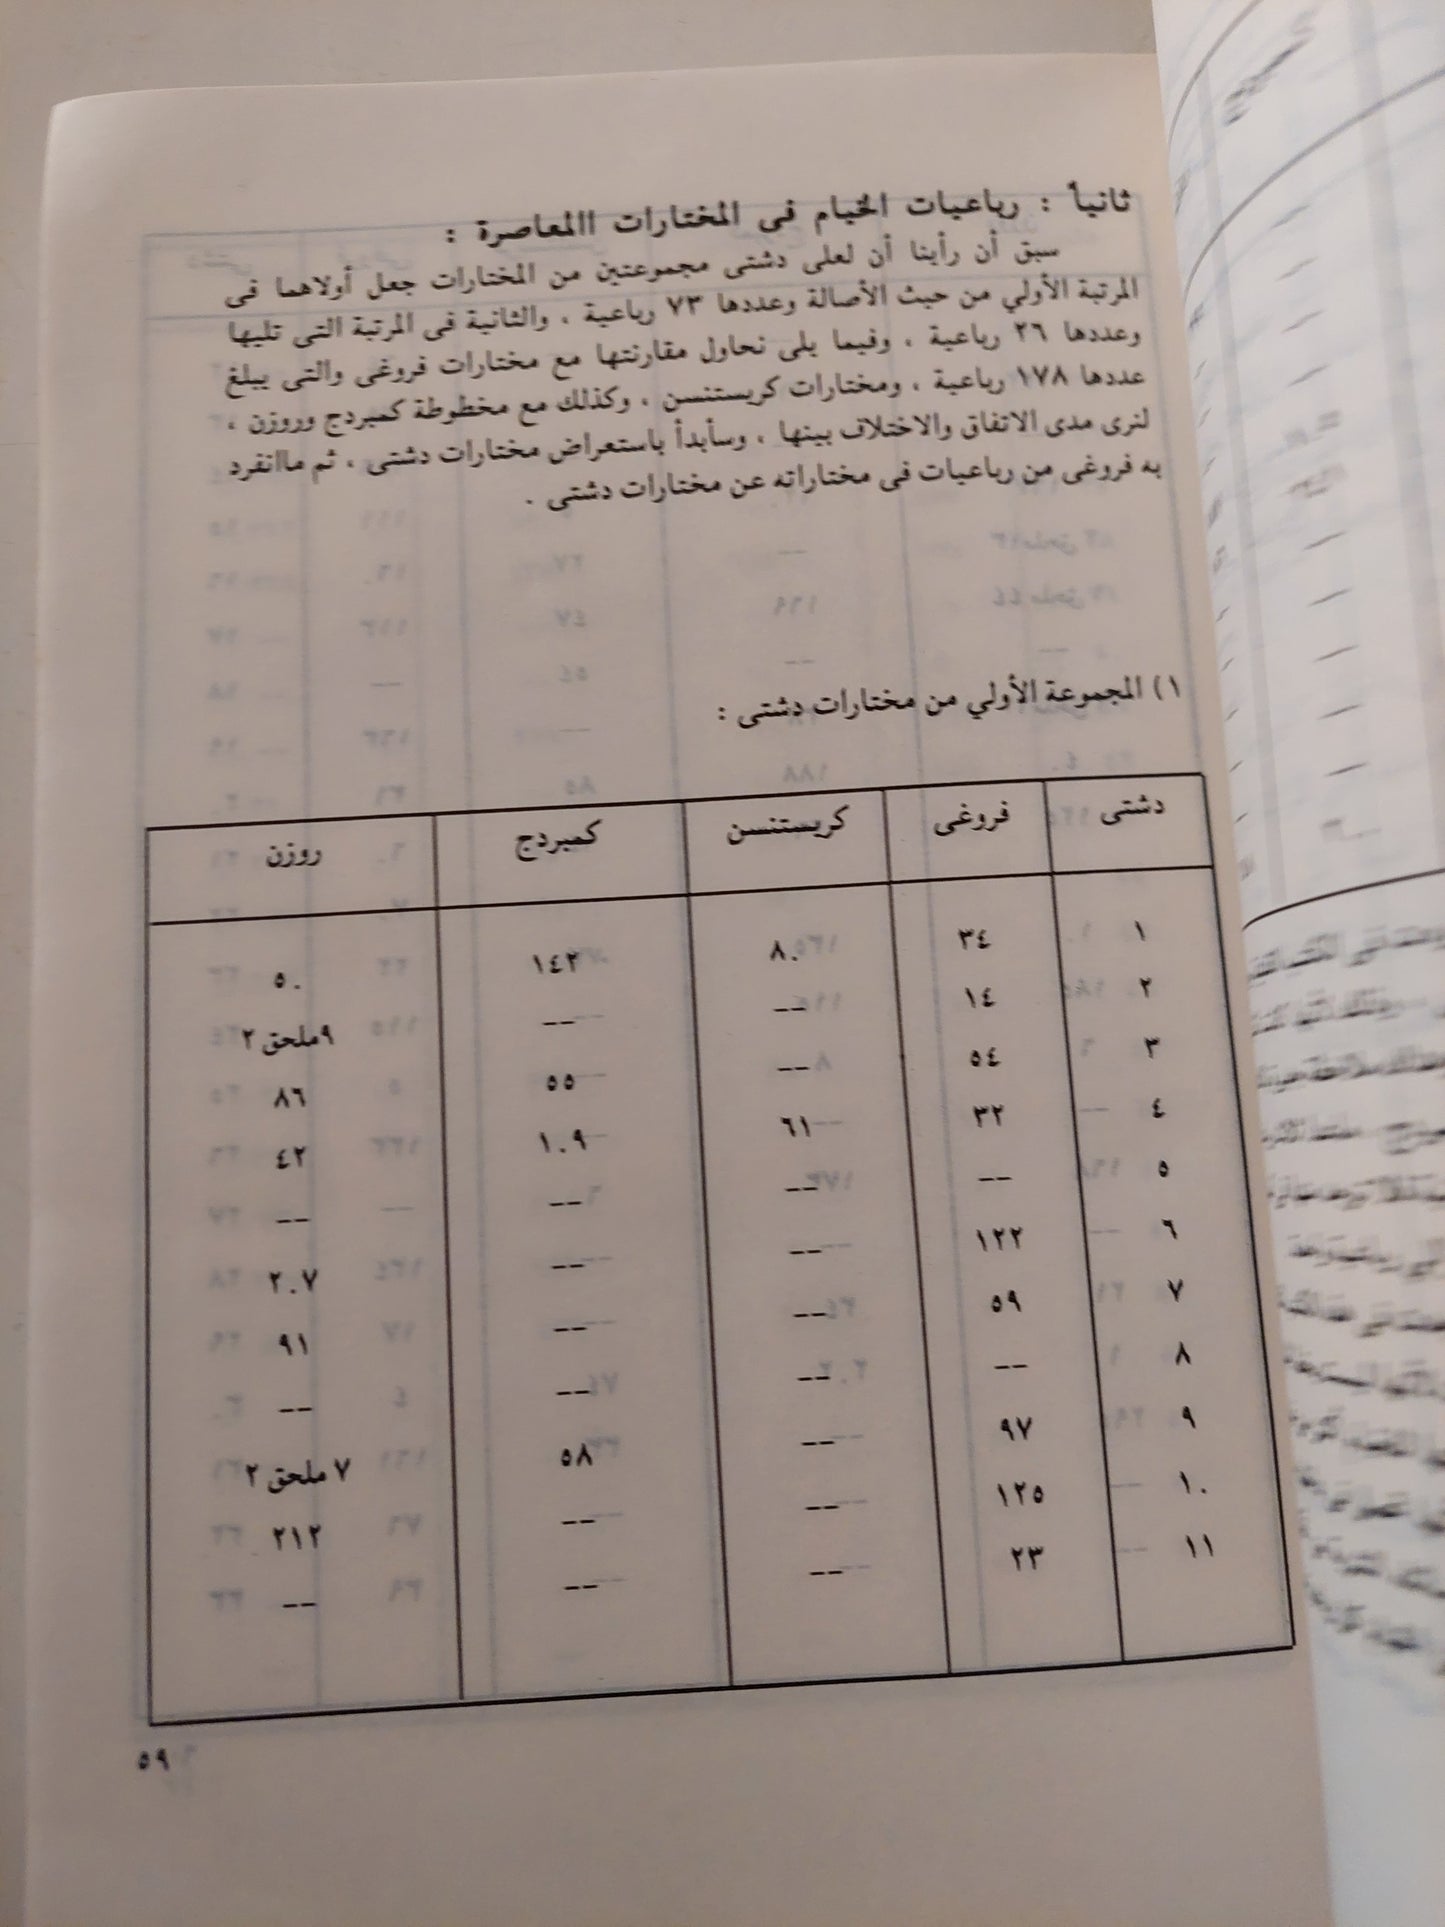 ثانياً : رباعيات الخيام فى المختارات االمعاصرة :
سبق أن رأينا أن لعلى دشتى مجموعتين من المختارات جعل أولاهما فى
المرتبة الأولي من حيث الأصالة وعددها ٧٣ رباعية ، والثانية فى المرتبة التى تليها
وعددها ٢٦ رباعية ، وفيما يلى نحاول مقارنتها مع مختارات فروغى والتى يبلغ
عددها ١٧٨ رباعية ، ومختارات كريستنسن ، وكذلك مع مخطوطة كمبردج وروزن ،
لنرى مدى الاتفاق والاختلاف بينها ، وسأبدأ باستعراض مختارات دشتى ، ثم ماانفرد
به فروغى من رباعيات فى مختاراته عن مختارات دشتى .
١) المجموعة الأولي من مختارات دشتى :
دشتى فروغى كريستنسن كمبردج روزن
١ ٣٤ ٨٠ ١٤٢ ٥٠
٢ ١٤ -- -- ٩ملحق ٢
٣ ٥٤ -- ٥٥ ٨٦
٤ ٣٢ ٦١ ١٠٩ ٤٢
٥ -- -- -- --
٦ ١٢٢ -- -- ٢٠٧
٧ ٥٩ -- -- ٩١
٨ -- -- -- --
٩ ٩٧ -- ٥٨ ٧ ملحق ٢
١٠ ١٢٥ -- -- ٢١٢
١١ ٢٣ -- -- --
٥٩